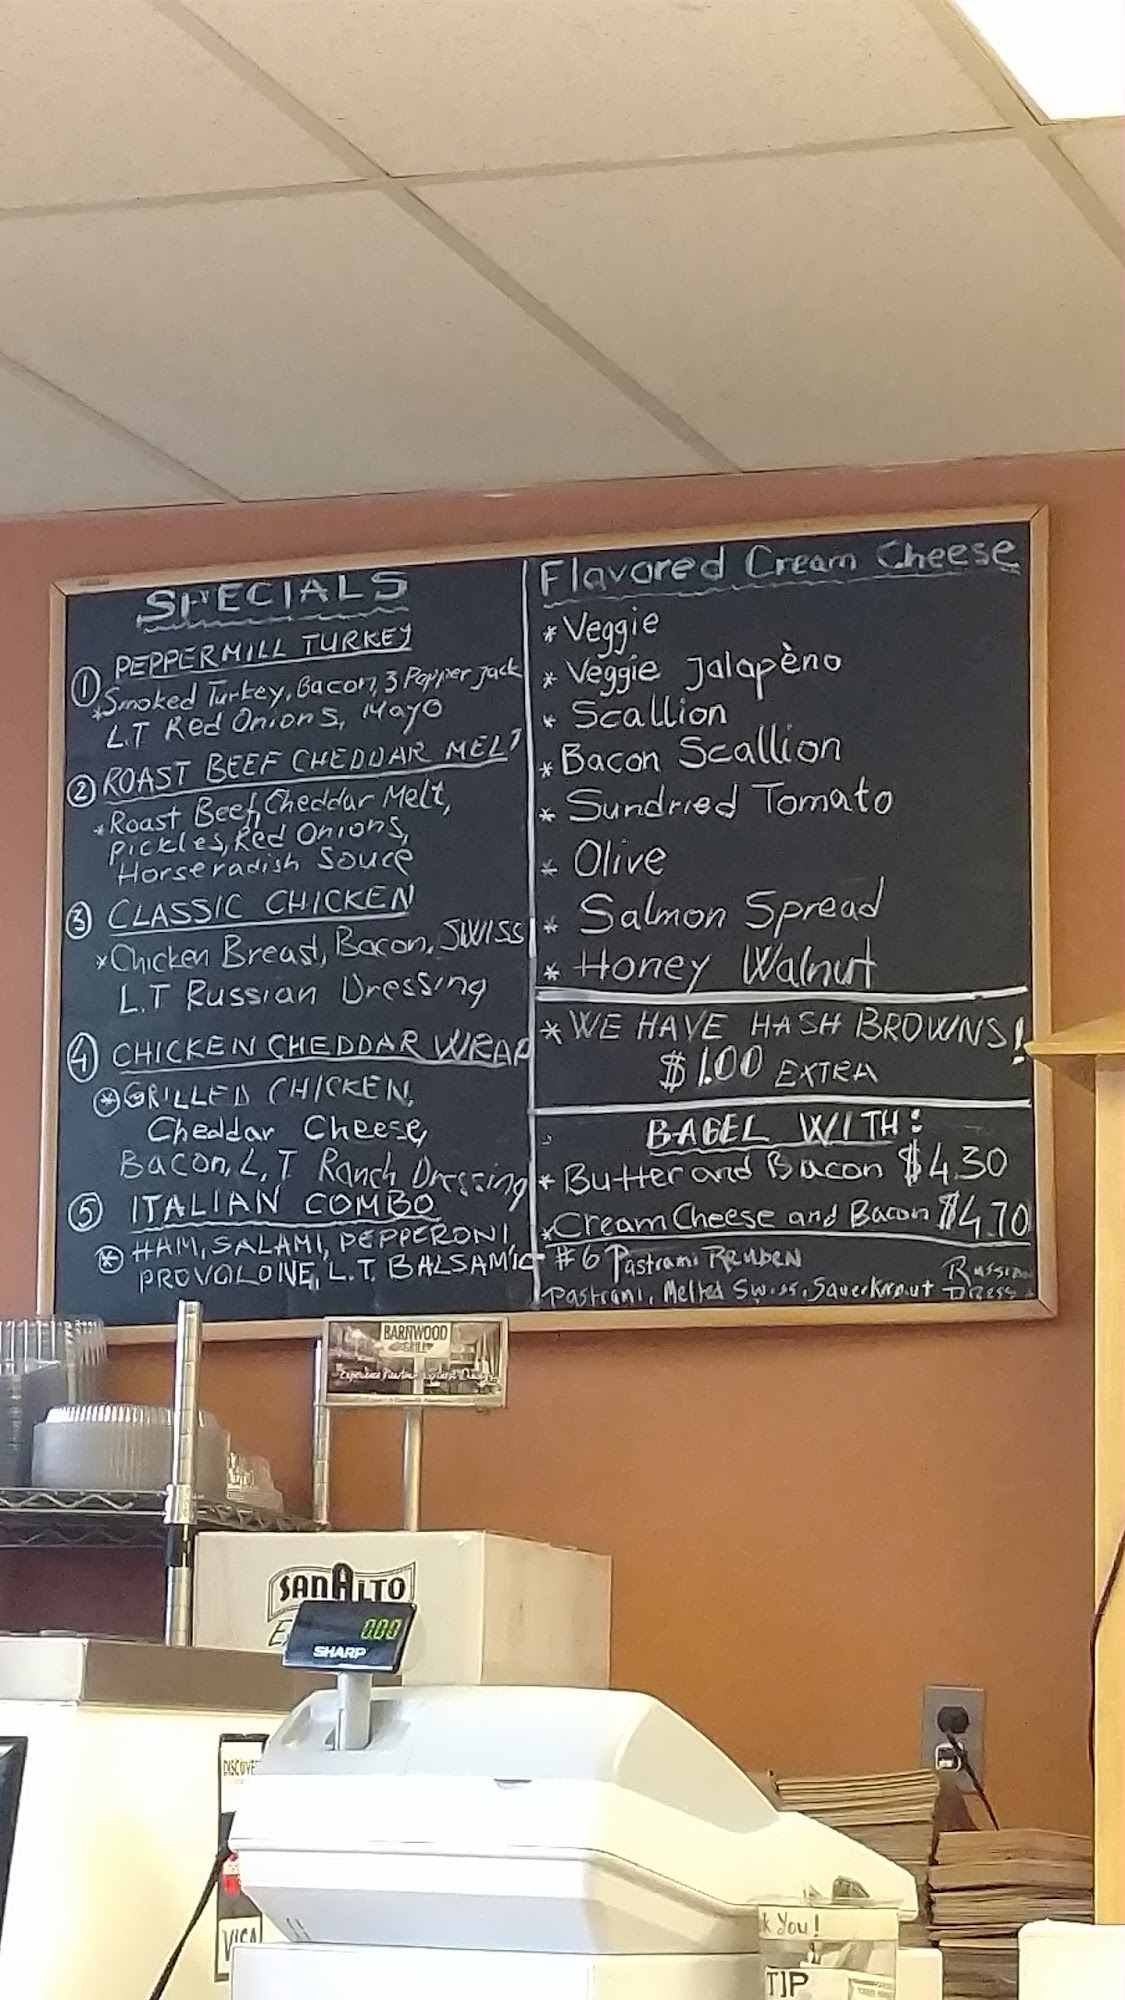 SPECIALS
① PEPPERMILL TURKEY
*Smoked Turkey, Bacon, 3 Pepper jack
L.T. Red Onions, Mayo
② ROAST BEEF CHEDDAR MELT
*Roast Beef, Cheddar Melt,
Pickles, Red Onions,
Horseradish Souce
③ CLASSIC CHICKEN
*Chicken Breast, Bacon, SWISS
L.T Russian Dressing
④ CHICKEN CHEDDAR WRAP
* GRILLED CHICKEN,
Cheddar Cheese,
Bacon, L, T Ranch Dressing
⑤ ITALIAN COMBO
* HAM, SALAMI, PEPPERONI,
PROVOLONE, L.T. BALSAMIC
Flavored Cream Cheese
* Veggie
* Veggie Jalapèno
* Scallion
* Bacon Scallion
* Sundried Tomato
* Olive
* Salmon Spread
* Honey Walnut
* WE HAVE HASH BROWNS!
$1.00 EXTRA
BAGEL WITH:
* Butter and Bacon $4.30
* Cream Cheese and Bacon $4.70
#6 Pastrami REUBEN
Pastrami, Melted Swiss, Sauerkraut Russian
Dress
BARNWOOD
GRILL
SANALTO
0.00
SHARP
DISCOVER
VISA
k You!
TIP